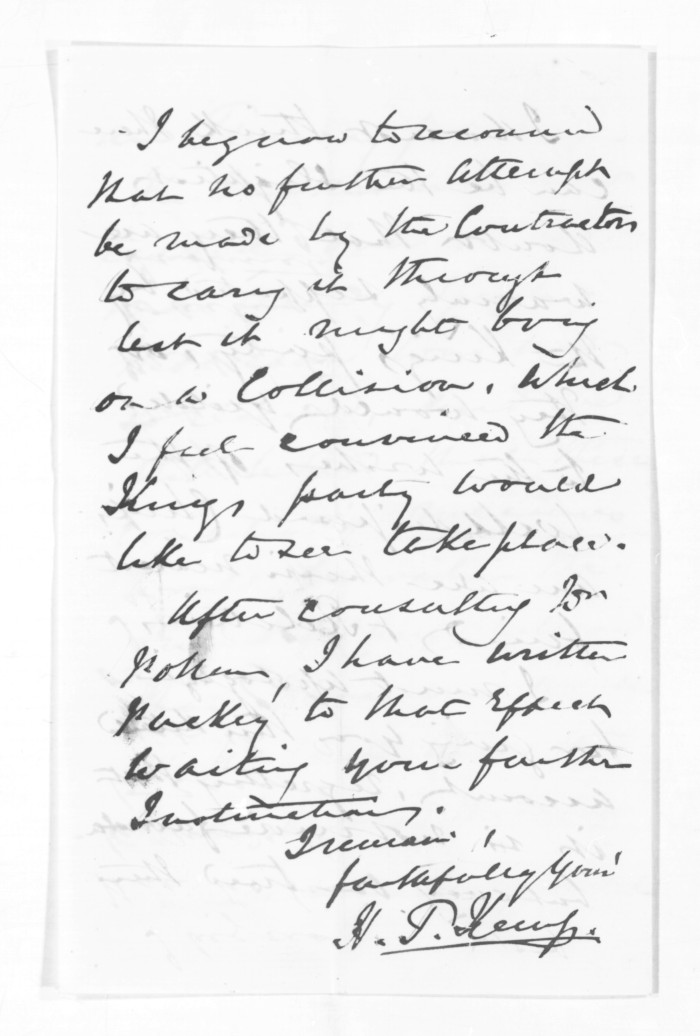 I beg now to recommend
that no further attempt
be made by the Contractors
to carry it through
lest it might bring
on a Collision, which
I feel convinced the
Kings party would
like to see take place.
After consulting
I have written
to that Effect
waiting your further
Instructions.
I remain,
faithfully Yours
H. T. Kemp.